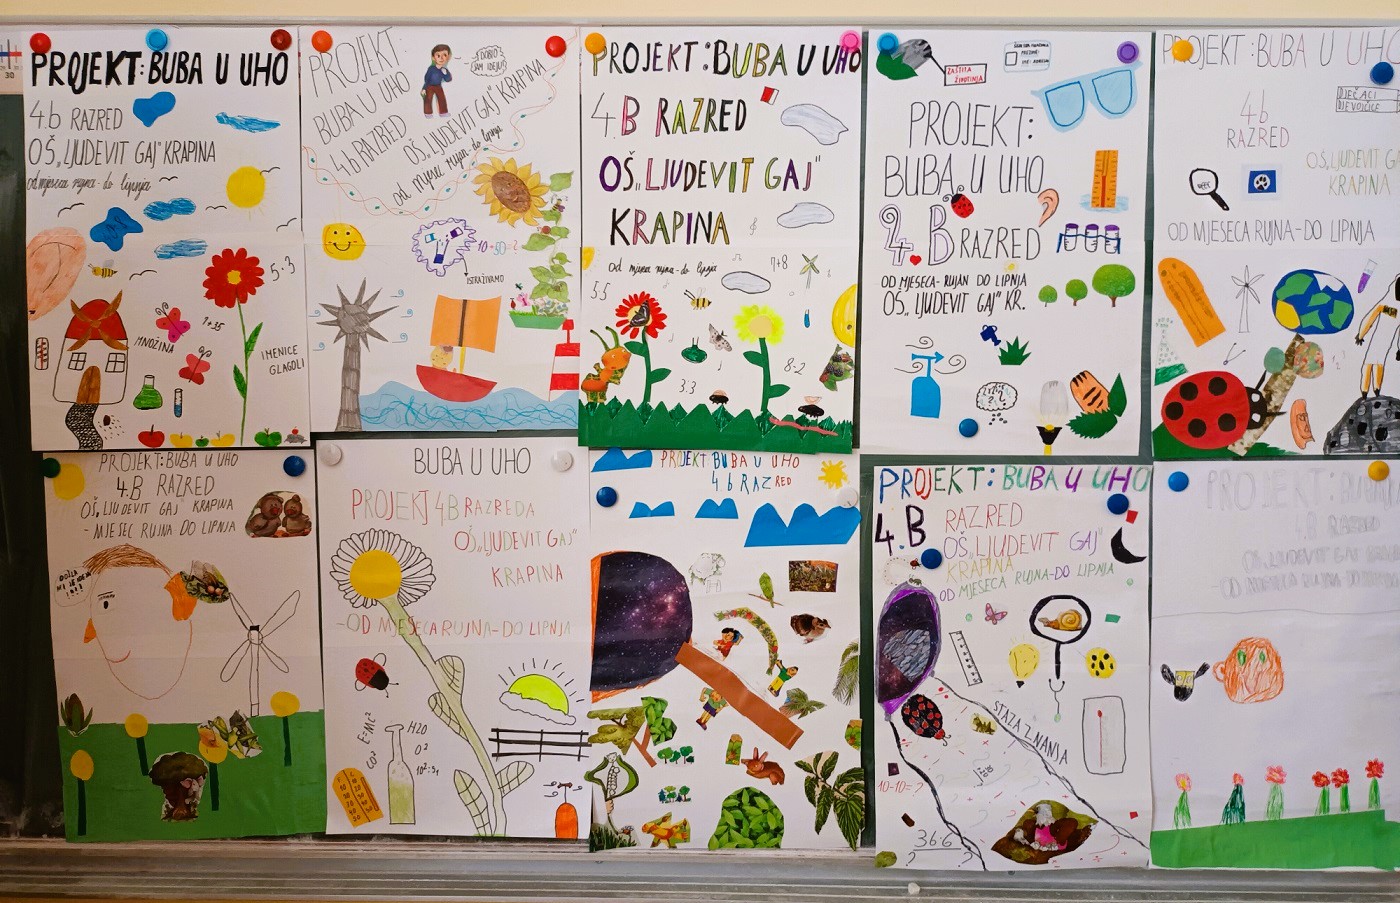 PROJEKT: BUBA U UHO
4.b RAZRED
OŠ „LJUDEVIT GAJ" KRAPINA
od mjeseca rujna - do lipnja
5:3
MNOŽINA
IMENICE
GLAGOLI
PROJEKT:
BUBA U UHO
4.b RAZRED
OŠ „LJUDEVIT GAJ" KRAPINA
ISTRAŽIVAMO
PROJEKT: BUBA U UHO
4.B RAZRED
OŠ „LJUDEVIT GAJ"
KRAPINA
od mjeseca rujna - do lipnja
5.5
7+8
3:3
8-2
ZAŠTITA
ŽIVOTINJA
PROJEKT:
BUBA U UHO
4.B RAZRED
OD MJESECA- RUJAN DO LIPNJA
OŠ „LJUDEVIT GAJ" KR.
PROJEKT: BUBA U UHO
DJEČACI
DJEVOJČICE
4.b
RAZRED
OŠ „LJUDEVIT GA
KRAPINA
OD MJESECA RUJNA-DO LIPNJA
PROJEKT: BUBA U UHO
4.B RAZRED
OŠ „LJUDEVIT GAJ" KRAPINA
- MJESEC RUJNA DO LIPNJA
BUBA U UHO
PROJEKT 4.B RAZREDA
OŠ „LJUDEVIT GAJ"
KRAPINA
-OD MJESECA RUJNA-DO LIPNJA
E=MC²
CO²
H2O
O²
PROJEKT BUBA U UHO
4.b RAZRED
PROJEKT: BUBA U UHO
4.B RAZRED
OŠ „LJUDEVIT GAJ"
KRAPINA
OD MJESECA RUJNA-DO LIPNJA
STAZA ZNANJA
10-10=?
36:6
?
?
PROJEKT: BUBA
4.B RAZRED